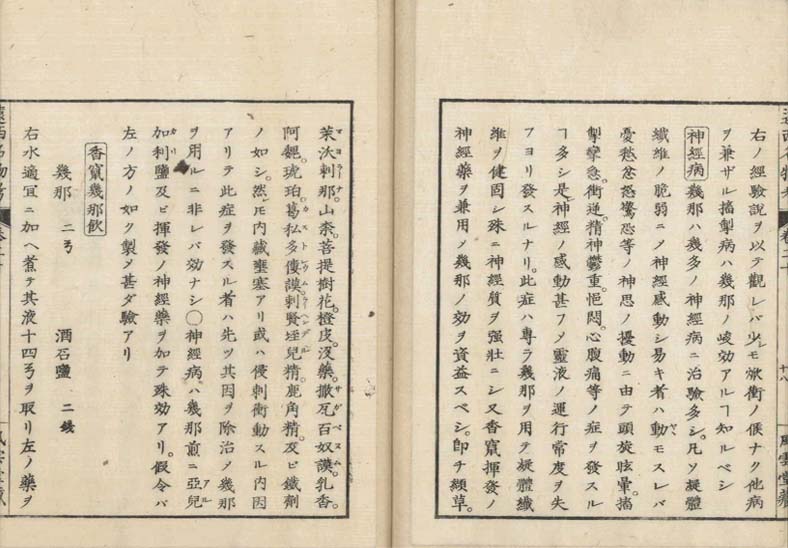 右ノ經驗說ヲ以テ觀レバ少モ焮衝ノ候ナク他病
ヲ兼ザル搐掣病ハ幾那ノ峻効アルヿ知ルベシ
神經病 幾那ハ幾多ノ神經病ニ治驗多シ。凡ソ凝體
纖維ノ脆弱ニメ神經感動シ易キ者ハ動モスレバ
憂愁忿怒驚恐等ノ神思ノ擾動ニ由テ頭旋眩暈。搐
掣攣急。衝逆。精神鬱重。悒悶。心腹痛等ノ症ヲ發スル
ヿ多シ是神經ノ感動甚フメ靈液ノ運行常度ヲ失
フヨリ發スルナリ。此症ハ專ラ幾那ヲ用テ凝體纖
維ヲ健固シ殊ニ神經質ヲ強壯ニシ又香竄揮發ノ
神經藥ヲ兼用メ幾那ノ効ヲ資益スベシ。卽チ纈草。
茉沃剌那。山柰。菩提樹花。橙皮。沒藥。撒瓦百奴謨。乳香。
阿魏。琥珀。葛私多僂謨。剌賢垤兒精。鹿角精。及ビ鐵劑
ノ如シ。然𪜈內藏壅塞アリ或ハ侵刺衝動スル內因
アリテ此症ヲ發スル者ハ先ツ其因ヲ除治メ幾那
ヲ用ルニ非レバ効ナシ〇神經病ハ幾那煎ニ亞兒
加利鹽及ビ揮發ノ神經藥ヲ加テ殊効アリ。假令バ
左ノ方ノ如ク製メ甚ダ驗アリ
香竄幾那飲
幾那 二ヲ 酒石鹽 二錢
右水適宜ニ加ヘ煮テ其液十四ヲヲ取リ左ノ藥ヲ